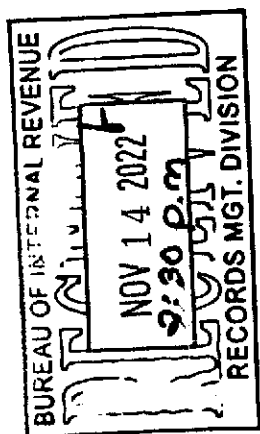 BUREAU OF INTERNAL REVENUE
RECEIVED
NOV 14 2022
2:30 p.m
RECORDS MGT. DIVISION